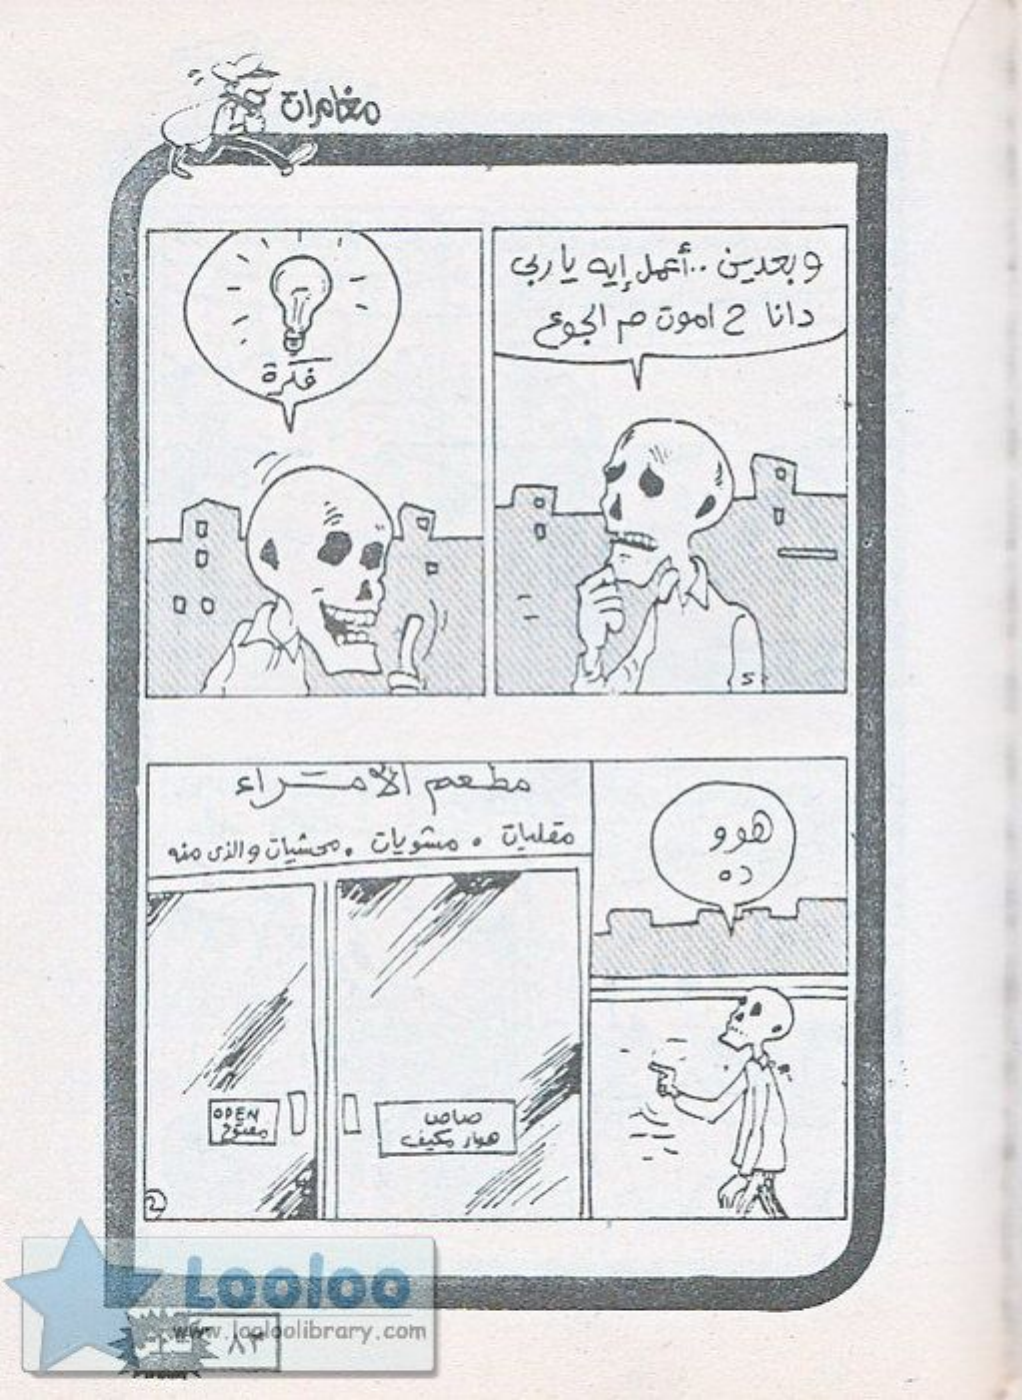 مغامرات
وبعدين .. أعمل إيه ياربي
دانا ح اموت م الجوع
فكرة
هوو
ده
مطعم الأمراء
مقليات . مشويات . محشيات والذى منه
صاص
هواء مكيف
OPEN
مفتوح
2
Looloo
www.looloolibrary.com
٨٣